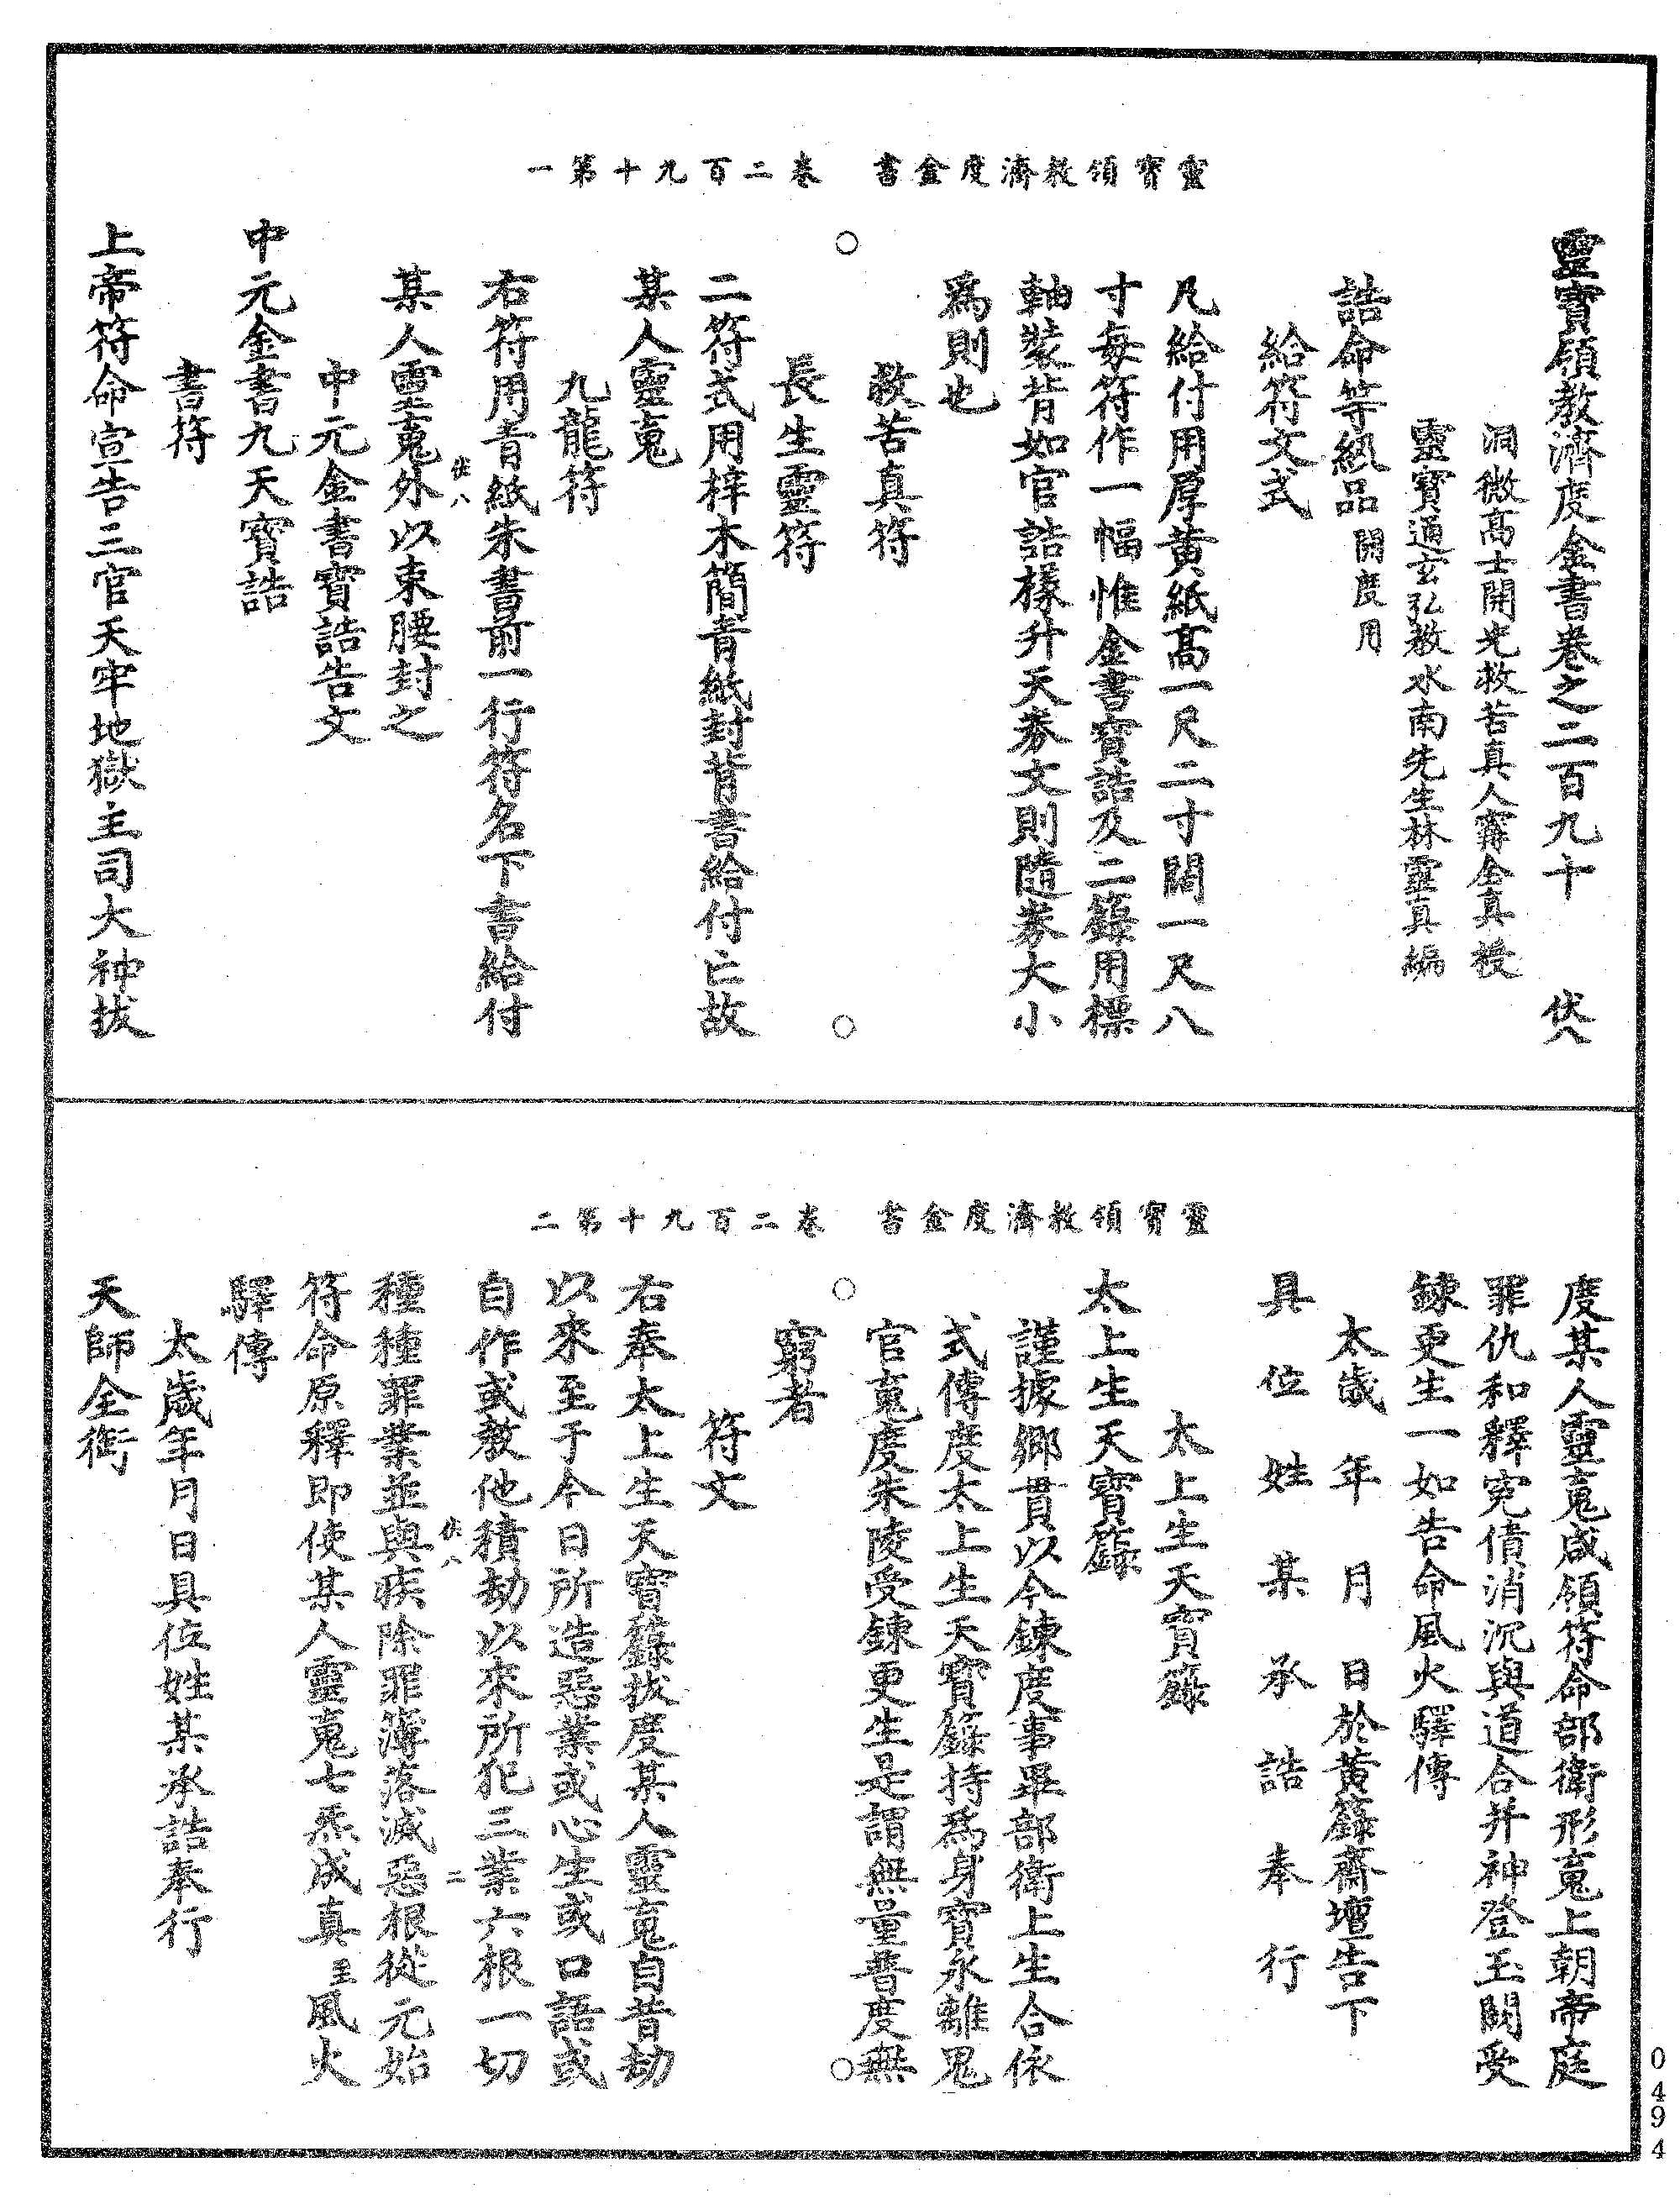 靈寶領教濟度金書 卷二百九十第一
靈寶領教濟度金書卷之二百九十 伏八
洞微高士開光救苦真人甯全真授
靈寶通玄弘教水南先生林靈真編
誥命等級品開度用
給符文式
凡給付用厚黃紙高一尺二寸闊一尺八
寸每符作一幅惟金書寶誥及二籙用標
軸裝背如官誥樣升天券文則隨券大小
爲則也
救苦真符
長生靈符
二符式用梓木簡青紙封背書給付亡故
某人靈䰟
九龍符
右符用青紙朱書前一行符名下書給付
某人靈䰟外以束腰封之
伏八
中元金書寶誥告文
中元金書九天寶誥
書符
上帝符命宣告三官天牢地獄主司大神拔
靈寶領教濟度金書 卷二百九十第二
度某人靈䰟咸領符命部衛形䰟上朝帝庭
罪仇和釋寃債消沉與道合并神登玉闕受
鍊更生一如告命風火驛傳
太歲 年 月 日於黃籙齋壇告下
具位姓某承誥奉行
太上生天寶籙
太上生天寶籙
謹據鄉貫以今鍊度事畢部衛上生合依
式傳度太上生天寶籙持爲身寶永離鬼
官䰟度朱陵受鍊更生是謂無量普度無
窮者
符文
右奉太上生天寶籙拔度某人靈䰟自昔劫
以來至于今日所造惡業或心生或口語或
自作或教他積劫以來所犯三業六根一切
伏八 二
種種罪業並與疾除罪簿落滅惡根從元始
符命原釋即使某人靈䰟七炁成真至風火
驛傳
太歲年月日具位姓某承誥奉行
天師全銜
0494